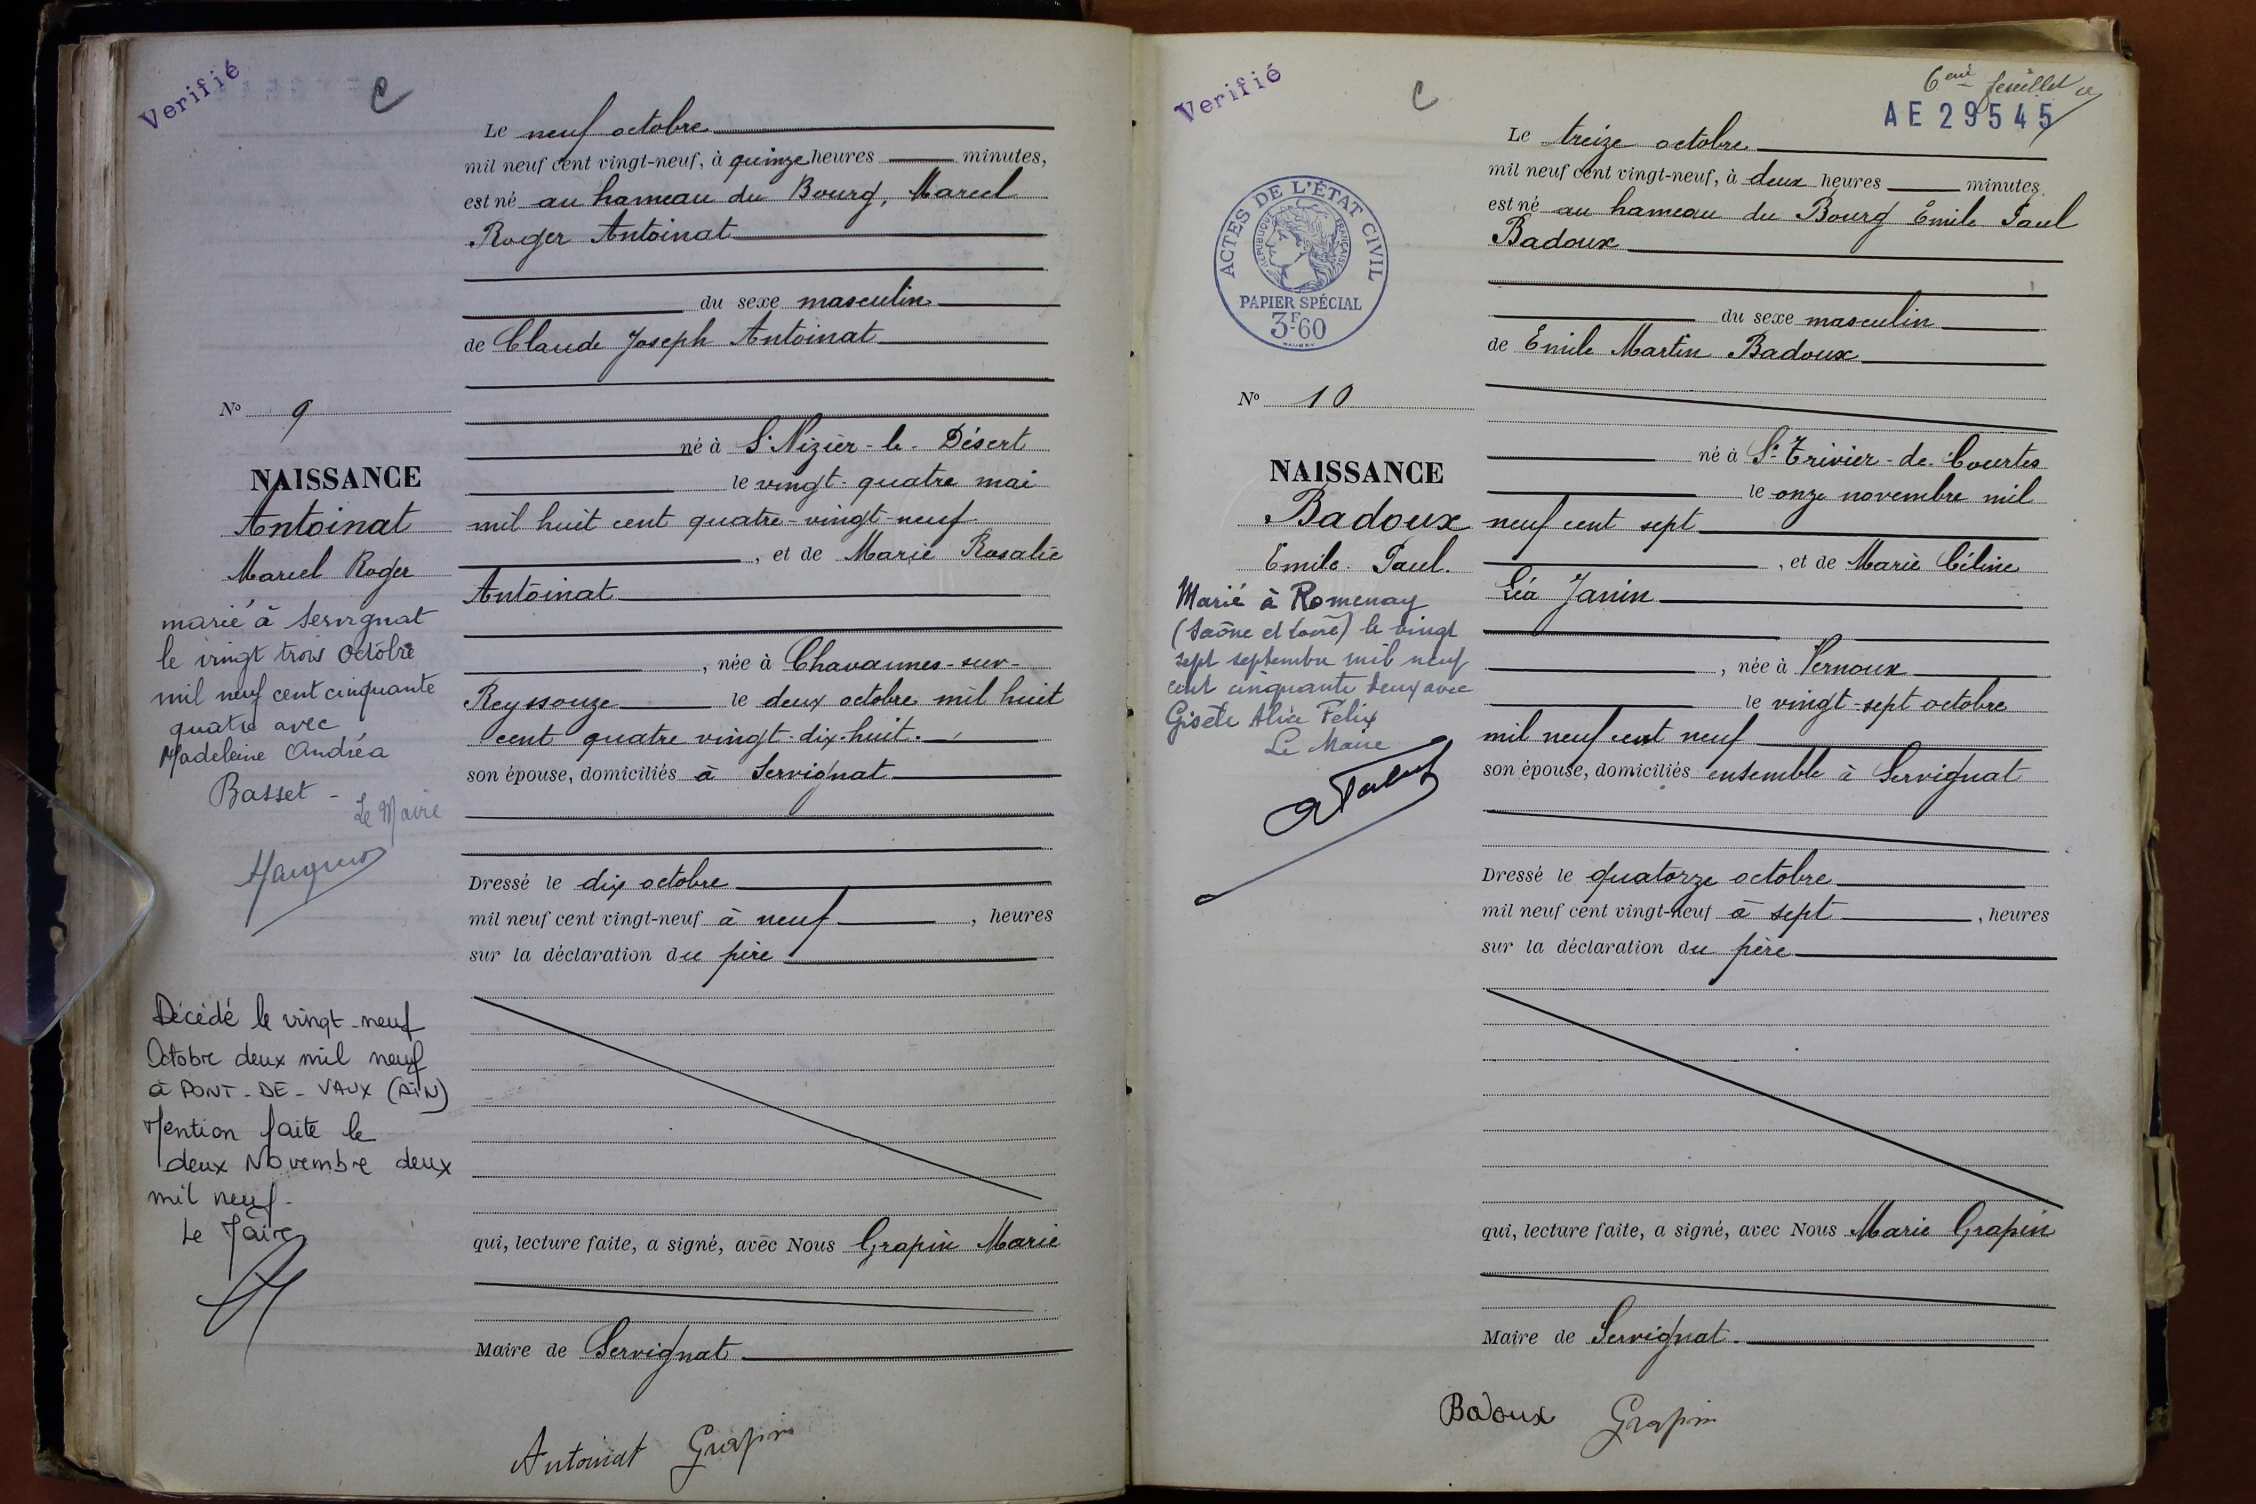 Verifié
C
Le neuf octobre
mil neuf cent vingt-neuf, à quinze heures minutes,
est né au hameau du Bourg, Marcel
Roger Antoinat
du sexe masculin
de Claude Joseph Antoinat
né à St Nizier-le-Désert
le vingt-quatre mai
mil huit cent quatre-vingt-neuf
, et de Marie Rosalie
Antoinat
, née à Chavannes-sur-
Reyssouze le deux octobre mil huit
cent quatre vingt-dix-huit.
son épouse, domiciliés à Servignat
Dressé le dix octobre
mil neuf cent vingt-neuf à neuf , heures
sur la déclaration du père
qui, lecture faite, a signé, avec Nous Grapin Marie
Maire de Servignat
Antoinat Grapin
No 9
NAISSANCE
Antoinat
Marcel Roger
marié à Servignat
le vingt trois Octobre
mil neuf cent cinquante
quatre avec
Madeleine Andréa
Basset -
Le Maire
Décédé le vingt-neuf
Octobre deux mil neuf
à PONT-DE-VAUX (AIN)
Mention faite le
deux Novembre deux
mil neuf-
Le Maire
Verifié
C
6eme feuillet
AE 29545
ACTES DE L'ÉTAT CIVIL
RÉPUBLIQUE FRANÇAISE
PAPIER SPÉCIAL
3F60
Le treize octobre
mil neuf cent vingt-neuf, à deux heures minutes
est né au hameau du Bourg Emile Paul
Badoux
du sexe masculin
de Emile Martin Badoux
né à St-Trivier-de-Courtes
le onze novembre mil
neuf cent sept
, et de Marie Céline
Léa Janin
, née à Vernoux
le vingt-sept octobre
mil neuf cent neuf
son épouse, domiciliés ensemble à Servignat
Dressé le quatorze octobre
mil neuf cent vingt-neuf à sept , heures
sur la déclaration du père
qui, lecture faite, a signé, avec Nous Marie Grapin
Maire de Servignat
Badoux Grapin
No 10
NAISSANCE
Badoux
Emile Paul.
Marié à Romenay
(Saône et Loire) le vingt
sept septembre mil neuf
cent cinquante deux avec
Gisèle Alice Felix
Le Maire